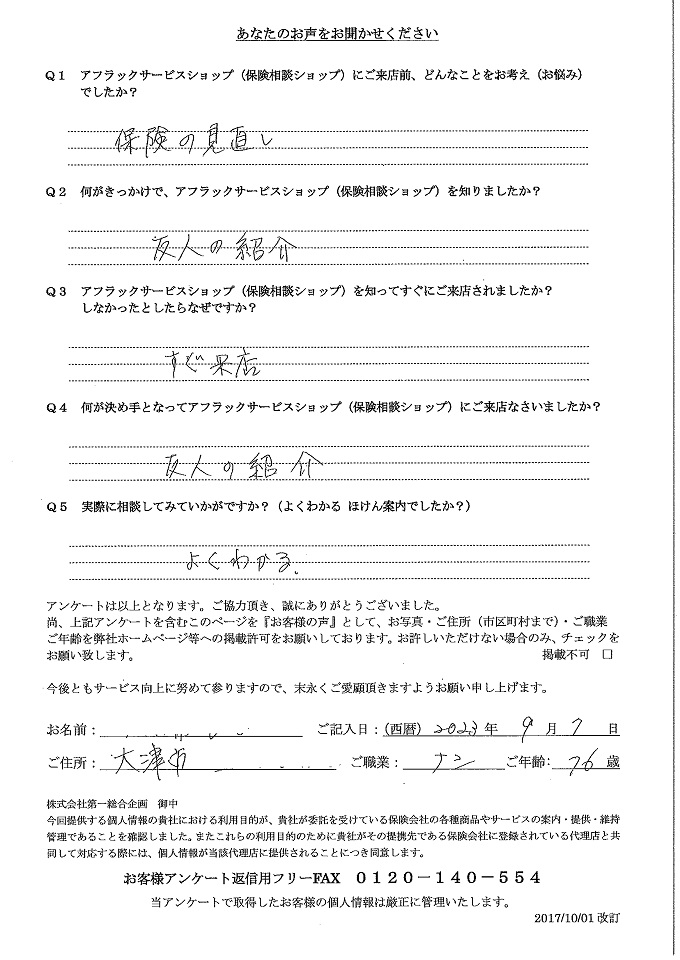 あなたのお声をお聞かせください
Q1 アフラックサービスショップ(保険相談ショップ)にご来店前、どんなことをお考え(お悩み)
でしたか?
保険の見直し
Q2 何がきっかけで、アフラックサービスショップ(保険相談ショップ)を知りましたか?
友人の紹介
Q3 アフラックサービスショップ(保険相談ショップ)を知ってすぐにご来店されましたか?
しなかったとしたらなぜですか?
すぐ来店
Q4 何が決め手となってアフラックサービスショップ(保険相談ショップ)にご来店なさいましたか?
友人の紹介
Q5 実際に相談してみていかがですか?(よくわかる ほけん案内でしたか?)
よくわかる.
アンケートは以上となります。ご協力頂き、誠にありがとうございました。
尚、上記アンケートを含むこのページを『お客様の声』として、お写真・ご住所(市区町村まで)・ご職業
ご年齢を弊社ホームページ等への掲載許可をお願いしております。お許しいただけない場合のみ、チェックを
お願い致します。 掲載不可 □
今後ともサービス向上に努めて参りますので、末永くご愛顧頂きますようお願い申し上げます。
お名前: ご記入日:(西暦) 2023 年 9 月 7 日
ご住所: 大津市 ご職業: ナシ ご年齢: 76 歳
株式会社第一総合企画 御中
今回提供する個人情報の貴社における利用目的が、貴社が委託を受けている保険会社の各種商品やサービスの案内・提供・維持
管理であることを確認しました。またこれらの利用目的のために貴社がその提携先である保険会社に登録されている代理店と共
同して対応する際には、個人情報が当該代理店に提供されることにつき同意します。
お客様アンケート返信用フリーFAX 0120-140-554
当アンケートで取得したお客様の個人情報は厳正に管理いたします。
2017/10/01 改訂